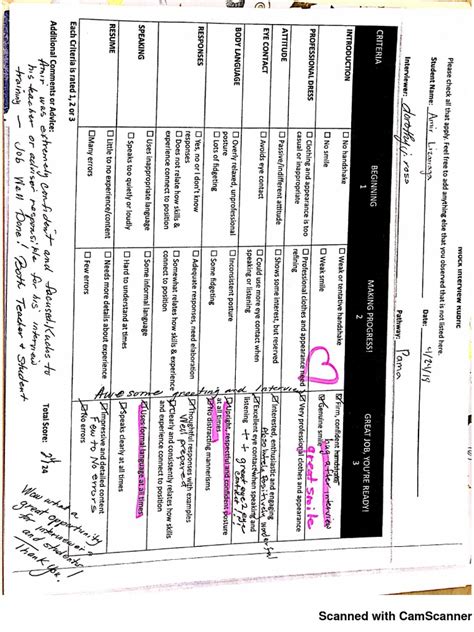 Mock Interview Rubric
Please check all that apply. Feel free to add anything else that you observed that is not listed here.
Student Name: Amir
Date: 4/24/19
Interviewer: Dorothy
Pathway:
CRITERIA
BEGINNING
1
MAKING PROGRESS!
2
GREAT JOB, YOU'RE READY!
3
INTRODUCTION
☐ No handshake
☐ No smile
☐ Weak or tentative handshake
☐ Weak smile
☑ Firm, confident handshake
☑ Genuine smile
hug after interview
great smile
PROFESSIONAL DRESS
☐ Clothing and appearance is too
casual or inappropriate
☐ Professional clothes and appearance need
refining
☑ Very professional clothes and appearance
ATTITUDE
☐ Passive/indifferent attitude
☐ Shows some interest, but reserved
☑ Interested, enthusiastic, and engaging
EYE CONTACT
☐ Avoids eye contact
☐ Could use more eye contact when
speaking or listening
☑ Excellent eye contact when speaking and
listening
+ + great eye 2 eye
contact!!
BODY LANGUAGE
☐ Overly relaxed, unprofessional
posture
☐ Lots of fidgeting
☐ Inconsistent posture
☐ Some fidgeting
☑ Upright, respectful and confident posture
at all times
☑ No distracting mannerisms
RESPONSES
☐ Yes, no or I don't know
responses
☐ Does not relate how skills &
experience connect to position
☐ Adequate responses, need
additional detail
☐ Somewhat relates how skills &
experience connect to position
☑ Thoughtful responses with examples
Well prepared
☑ Clearly and consistently relates how skills
and experience connect to position
SPEAKING
☐ Uses inappropriate language
☐ Speaks too quietly or loudly
☐ Some informal language
☐ Hard to understand at times
☑ Uses formal language at all times
☑ Speaks clearly at all times
RESUME
☐ Little to no experience/content
☐ Many errors
☐ Needs more details about experience
☐ Few errors
☑ Impressive and detailed content
☑ No errors
Few to No errors
Awesome greeting and Interview
Each Criteria is rated 1, 2 or 3
Total Score: 24
Additional Comments or Advice:
was extremely confident and focused. Kudos to
his teacher or advisor responsible for his interview
training – Job Well Done! Both Teacher & Student
Wow what a
great opportunity
for
and students
Thank you!
Scanned with CamScanner